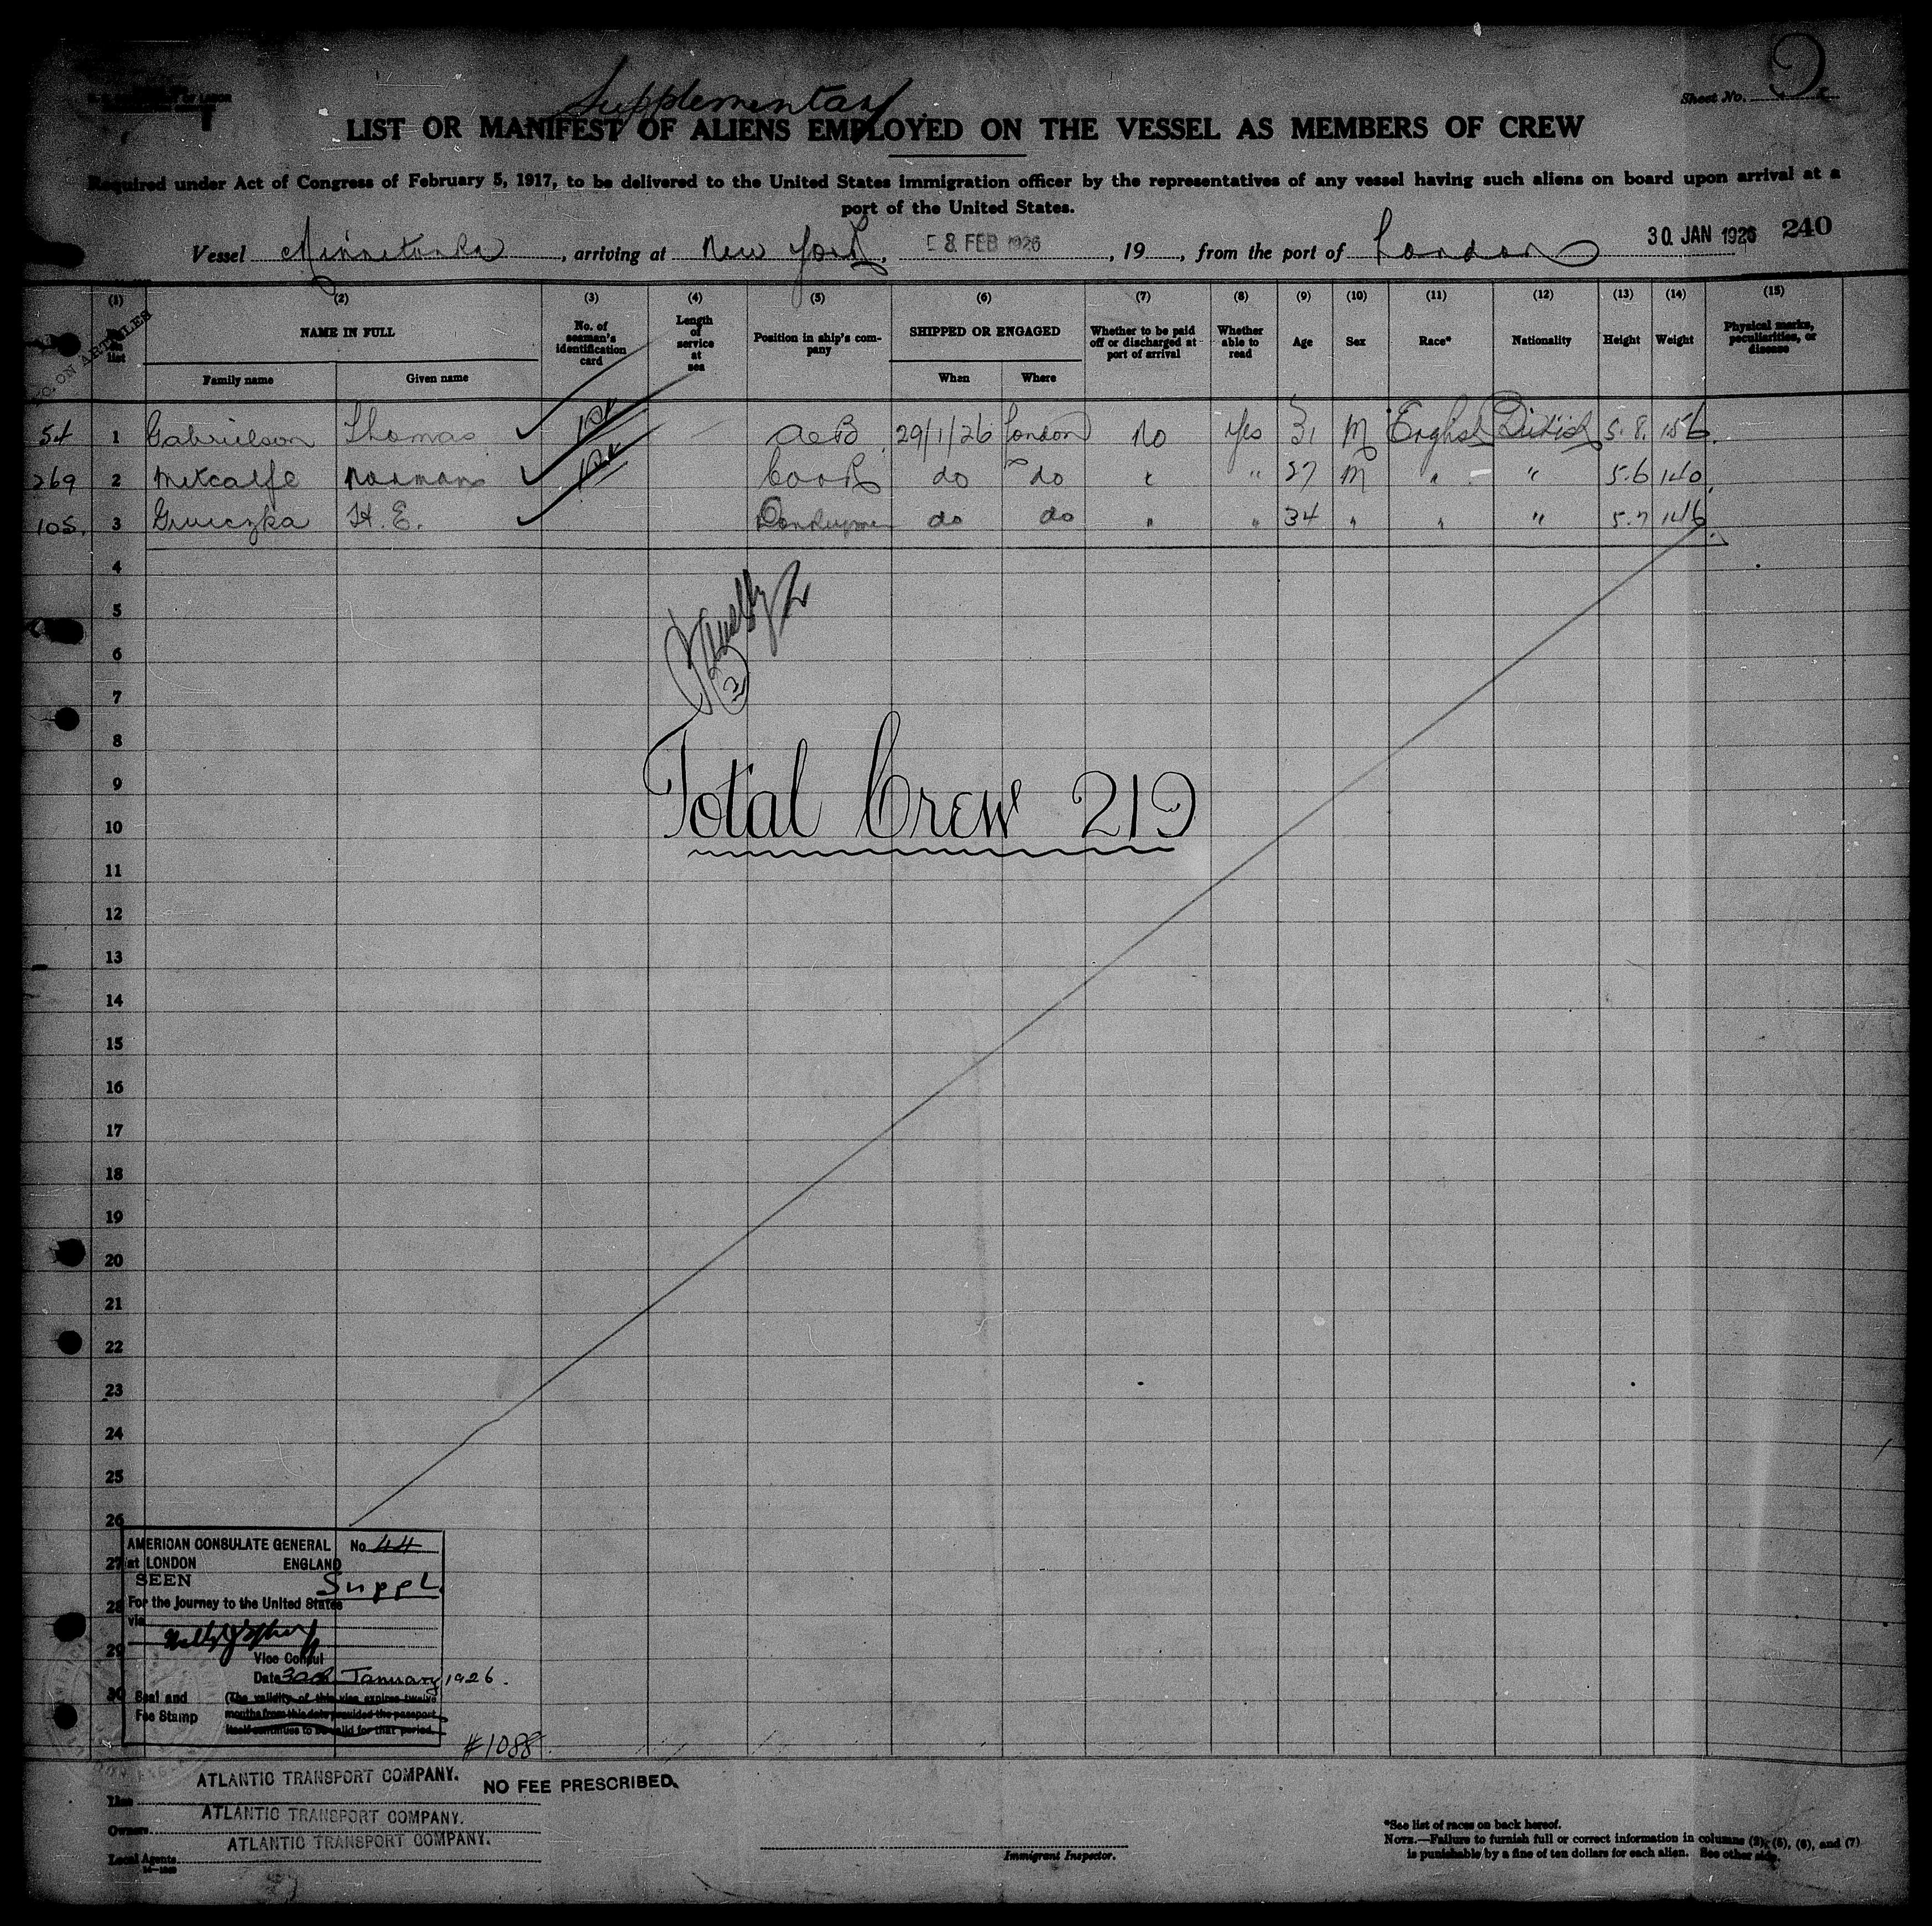 Supplementary
Sheet No. 9.
LIST OR MANIFEST OF ALIENS EMPLOYED ON THE VESSEL AS MEMBERS OF CREW
Required under Act of Congress of February 5, 1917, to be delivered to the United States immigration officer by the representatives of any vessel having such aliens on board upon arrival at a
port of the United States.
Vessel Minnetonka, arriving at New York, 8 FEB 1926, 19, from the port of London 30 JAN 1926 240
(1) (2) (3) (4) (5) (6) (7) (8) (9) (10) (11) (12) (13) (14) (15)
NO. ON ARTICLES
No. on list
NAME IN FULL
Family name Given name
No. of seaman's identification card
Length of service at sea
Position in ship's company
SHIPPED OR ENGAGED
When Where
Whether to be paid off or discharged at port of arrival
Whether able to read
Age Sex Race* Nationality Height Weight
Physical marks, peculiarities, or disease
54 1 Gabrielson Thomas AeB 29/1/26 London No Yes 31 M English British 5.8. 156.
269 2 Metcalfe Norman Cook do do " " 27 M " " 5.6 140
105. 3 H. E. Donkeyman do do " " 34 " " " 5.7 146
4
5
6
7
8
9
Total Crew 219
10
11
12
13
14
15
16
17
18
19
20
21
22
23
24
25
26
27
28
29
30
AMERICAN CONSULATE GENERAL No 44
at LONDON ENGLAND
SEEN Suppl.
For the Journey to the United States
via
Vice Consul
Date 30th January 1926.
Seal and Fee Stamp
(The validity of this visa expires twelve
months from this date provided the passport
itself continues to be valid for that period.
#1088
NO FEE PRESCRIBED.
Line ATLANTIC TRANSPORT COMPANY.
Owners ATLANTIC TRANSPORT COMPANY.
Local Agents ATLANTIC TRANSPORT COMPANY.
Immigrant Inspector.
*See list of races on back hereof.
NOTE.—Failure to furnish full or correct information in columns (2), (5), (6), and (7)
is punishable by a fine of ten dollars for each alien. See other side.